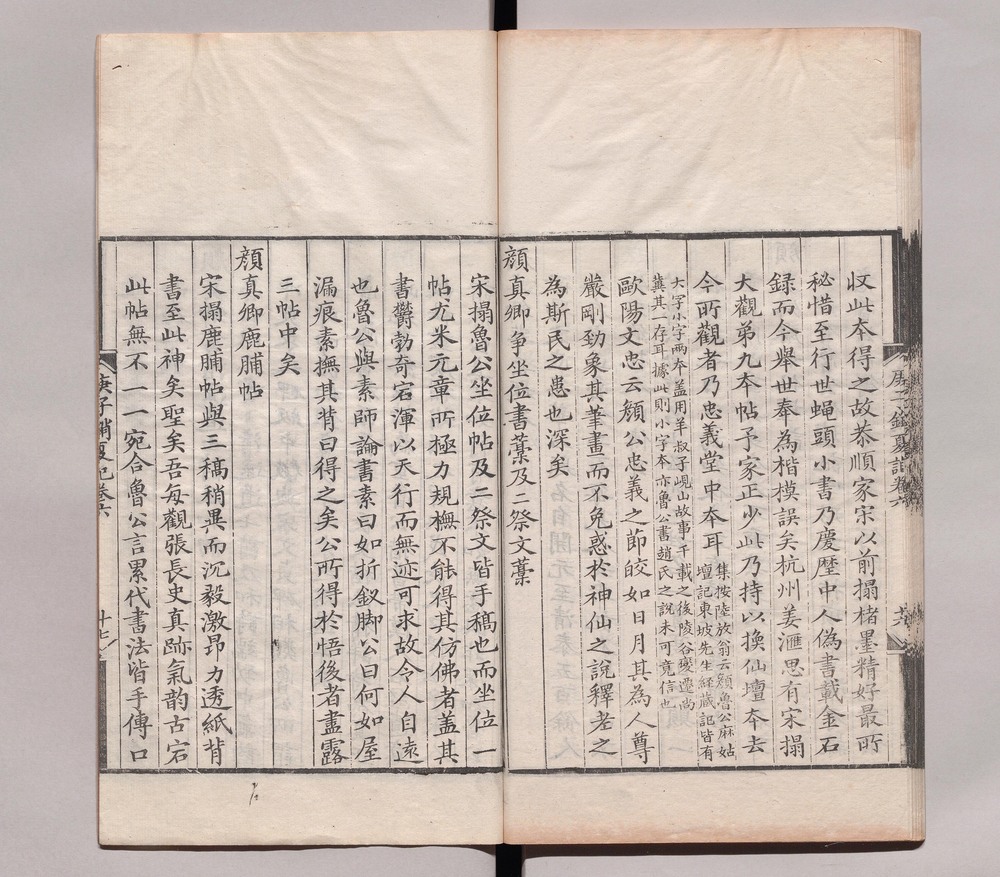 収此本得之故恭順家宋以前搨楮墨精好最所
秘惜至行世蝇頭小書乃慶歴中人偽書載金石
録而今舉世奉為楷模誤矣杭州姜滙思有宋搨
大觀弟九本帖予家正少此乃持以換仙壇本去
今所觀者乃忠義堂中本耳
集按陸放翁云顔魯公麻姑
壇記東坡先生経藏記皆有
大字小字兩本蓋用羊叔子峴山故事千載之後陵谷變遷尚
冀其一存耳據此則小字本亦魯公書趙氏之說未可竟信也
歐陽文忠云顔公忠義之節皎如日月其為人尊
嚴剛勁象其筆畫而不免惑於神仙之說釋老之
為斯民之患也深矣
顔真卿争坐位書藁及二祭文藁
宋搨魯公坐位帖及二祭文皆手稿也而坐位一
帖尤米元章所極力規橅不能得其仿佛者盖其
書欝勃奇宕渾以天行而無迹可求故令人自遠
也魯公與素師論書素曰如折釵脚公曰何如屋
漏痕素撫其背曰得之矣公所得於悟後者盡露
三帖中矣
顔真卿鹿脯帖
宋搨鹿脯帖與三稿稍異而沉毅激昂力透紙背
書至此神矣聖矣吾每觀張長史真跡氣韵古宕
此帖無不一一宛合魯公言累代書法皆手傳口
庚子銷夏記卷六
十七